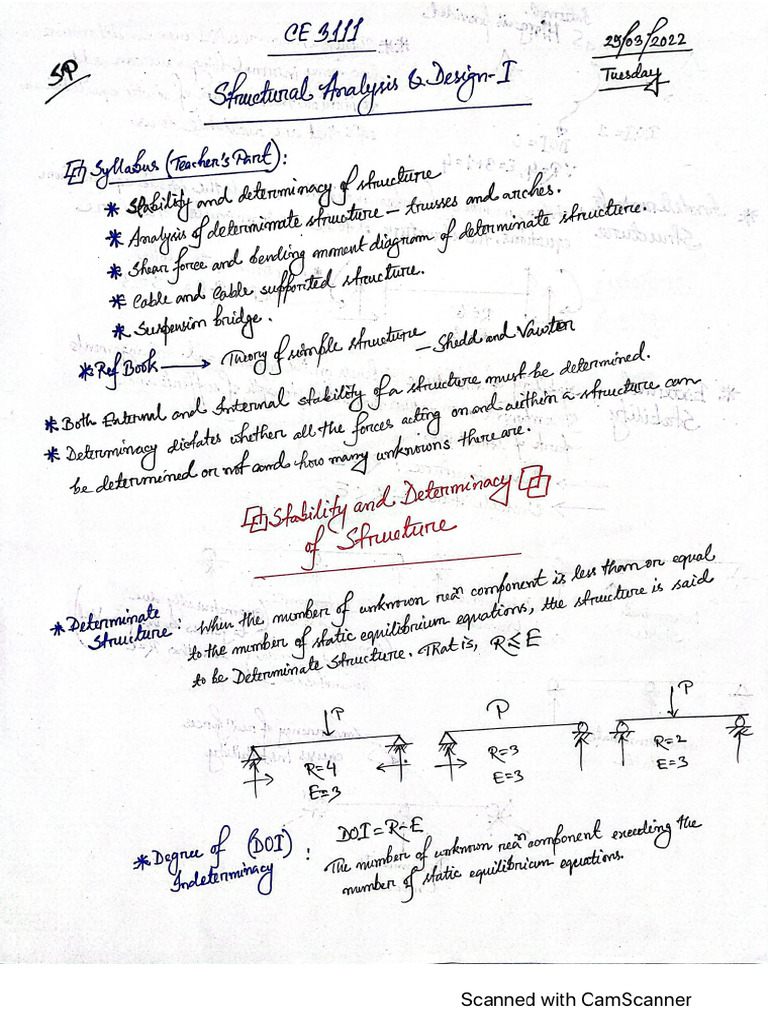 CE 3111
29/03/2022
Tuesday
SP
Structural Analysis & Design-I
Syllabus (Teacher's Part):
* Stability and determinacy of structure
* Analysis of determinate structure – trusses and arches.
* Shear force and bending moment diagram of determinate structure.
* Cable and Cable supported structure.
* Suspension bridge.
* Ref Book → Theory of simple structure – Shedd and Vawter
* Both External and Internal stability of a structure must be determined.
* Determinacy dictates whether all the forces acting on and within a structure can
be determined or not and how many unknowns there are.
Stability and Determinacy
of Structure
* Determinate Structure : When the number of unknown reaⁿ component is less than or equal
to the number of static equilibrium equations, the structure is said
to be Determinate Structure. That is, R≤E
P
R=4
E=3
P
R=3
E=3
P
R=2
E=3
* Degree of Indeterminacy (DOI) : DOI = R-E
The number of unknown reaⁿ component exceeding the
number of static equilibrium equations.
Scanned with CamScanner